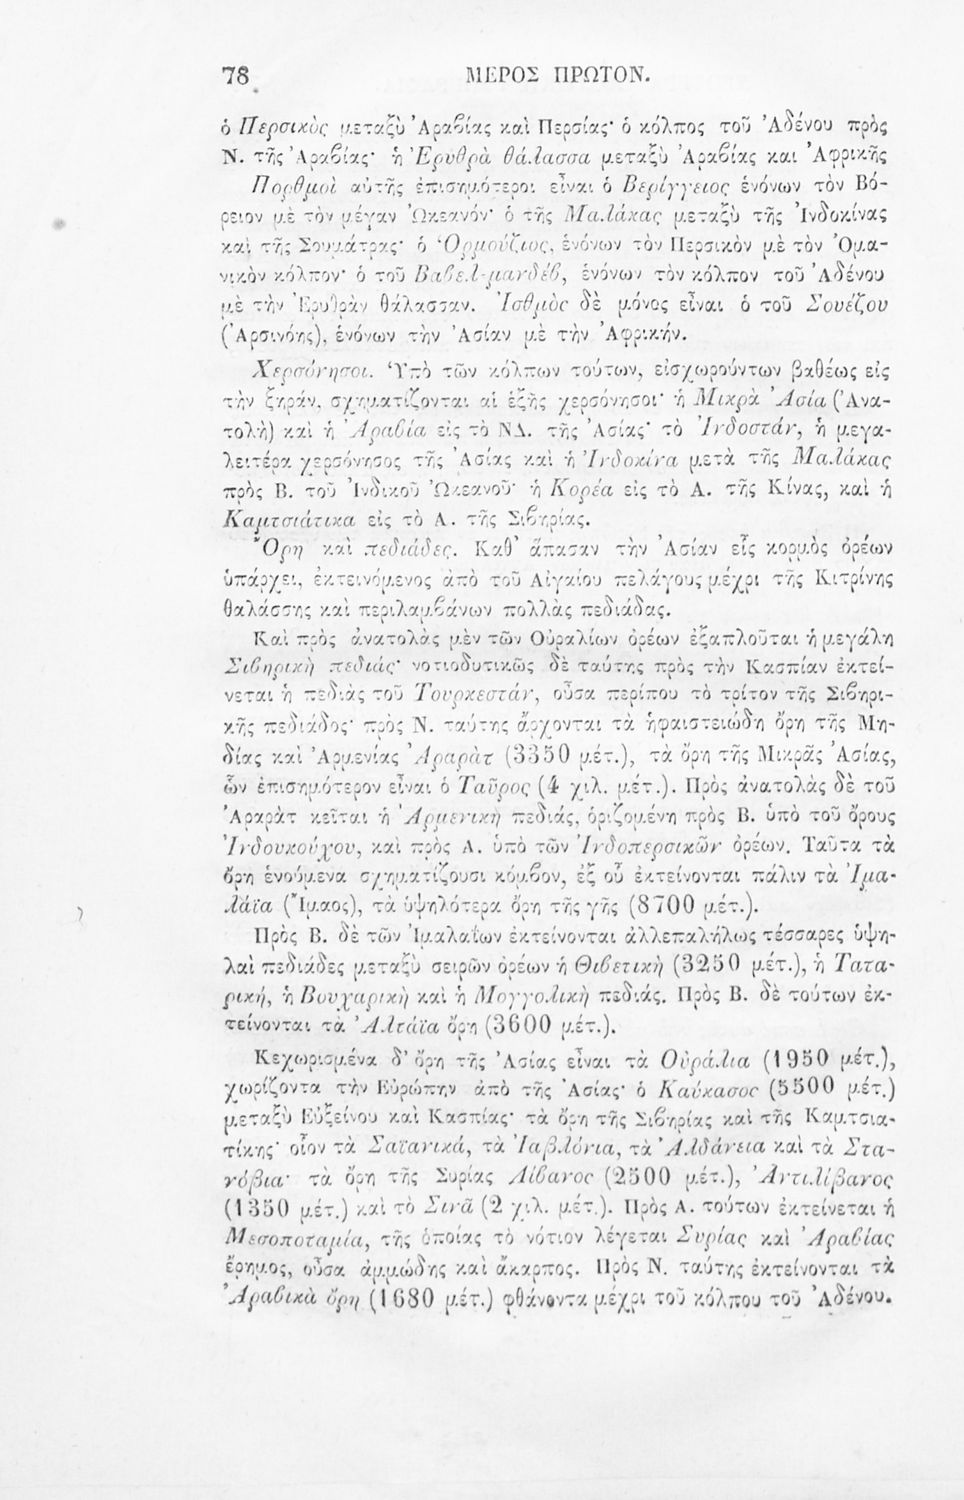 78
ΜΕΡΟΣ ΠΡΩΤΟΝ.
ὁ Περσικὸς μεταξὺ Ἀραβίας καὶ Περσίας· ὁ κόλπος τοῦ Ἀδένου πρὸς
Ν. τῆς Ἀραβίας· ἡ Ἐρυθρὰ θάλασσα μεταξὺ Ἀραβίας και Ἀφρικῆς
Πορθμοὶ αὐτῆς ἐπισημότεροι εἶναι ὁ Βερίγγειος ἑνόνων τὸν Βό-
ρειον μὲ τὸν μέγαν Ὠκεανόν· ὁ τῆς Μαλάκας μεταξὺ τῆς Ἰνδοκίνας
καὶ τῆς Σουμάτρας· ὁ Ὁρμούζιος, ἑνόνων τὸν Περσικὸν μὲ τὸν Ὀμα-
νικὸν κόλπον· ὁ τοῦ Βαβελ-μανδέβ, ἑνόνων τὸν κόλπον τοῦ Ἀδένου
μὲ τὴν Ἐρυθρὰν θάλασσαν. Ἰσθμὸς δὲ μόνος εἶναι ὁ τοῦ Σουέζου
(Ἀρσινόης), ἑνόνων τὴν Ἀσίαν μὲ τὴν Ἀφρικήν.
Χερσόνησοι. Ὑπὸ τῶν κόλπων τούτων, εἰσχωρούντων βαθέως εἰς
τὴν ξηράν, σχηματίζονται αἱ ἑξῆς χερσόνησοι· ἡ Μικρὰ Ἀσία (Ἀνα-
τολὴ) καὶ ἡ Ἀραβία εἰς τὸ ΝΔ. τῆς Ἀσίας· τὸ Ἰνδοστάν, ἡ μεγα-
λειτέρα χερσόνησος τῆς Ἀσίας καὶ ἡ Ἰνδοκίνα μετὰ τῆς Μαλάκας
πρὸς Β. τοῦ Ἰνδικοῦ Ὠκεανοῦ· ἡ Κορέα εἰς τὸ Α. τῆς Κίνας, καὶ ἡ
Καμτσιάτικα εἰς τὸ Α. τῆς Σιβηρίας.
Ὄρη καὶ πεδιάδες. Καθ' ἅπασαν τὴν Ἀσίαν εἷς κορμὸς ὀρέων
ὑπάρχει, ἐκτεινόμενος ἀπὸ τοῦ Αἰγαίου πελάγους μέχρι τῆς Κιτρίνης
θαλάσσης καὶ περιλαμβάνων πολλὰς πεδιάδας.
Καὶ πρὸς ἀνατολὰς μὲν τῶν Οὐραλίων ὀρέων ἐξαπλοῦται ἡ μεγάλη
Σιβηρικὴ πεδιάς· νοτιοδυτικῶς δὲ ταύτης πρὸς τὴν Κασπίαν ἐκτεί-
νεται ἡ πεδιὰς τοῦ Τουρκεστάν, οὖσα περίπου τὸ τρίτον τῆς Σιβηρι-
κῆς πεδιάδος· πρὸς Ν. ταύτης ἄρχονται τὰ ἡφαιστειώδη ὄρη τῆς Μη-
δίας καὶ Ἀρμενίας Ἀραρὰτ (3350 μέτ.), τὰ ὄρη τῆς Μικρᾶς Ἀσίας,
ὧν ἐπισημότερον εἶναι ὁ Ταῦρος (4 χιλ. μέτ.). Πρὸς ἀνατολὰς δὲ τοῦ
Ἀραρὰτ κεῖται ἡ Ἀρμενικὴ πεδιάς, ὁριζομένη πρὸς Β. ὑπὸ τοῦ ὄρους
Ἰνδουκούχου, καὶ πρὸς Α. ὑπὸ τῶν Ἰνδοπερσικῶν ὀρέων. Ταῦτα τὰ
ὄρη ἑνούμενα σχηματίζουσι κόμβον, ἐξ οὗ ἐκτείνονται πάλιν τὰ Ἱμα-
λάϊα (Ἴμαος), τὰ ὑψηλότερα ὄρη τῆς γῆς (8700 μέτ.).
Πρὸς Β. δὲ τῶν Ἱμαλαΐων ἐκτείνονται ἀλλεπαλήλως τέσσαρες ὑψη-
λαὶ πεδιάδες μεταξὺ σειρῶν ὀρέων ἡ Θιβετικὴ (3250 μέτ.), ἡ Τατα-
ρική, ἡ Βουχαρικὴ καὶ ἡ Μογγολικὴ πεδιάς. Πρὸς Β. δὲ τούτων ἐκ-
τείνονται τὰ Ἀλτάϊα ὄρη (3600 μέτ.).
Κεχωρισμένα δ' ὄρη τῆς Ἀσίας εἶναι τὰ Οὐράλια (1950 μέτ.),
χωρίζοντα τὴν Εὐρώπην ἀπὸ τῆς Ἀσίας· ὁ Καύκασος (5500 μέτ.)
μεταξὺ Εὐξείνου καὶ Κασπίας· τὰ ὄρη τῆς Σιβηρίας καὶ τῆς Καμτσια-
τίκης· οἷον τὰ Σαϊανικά, τὰ Ἰαβλόνια, τὰ Ἀλδάνεια καὶ τὰ Στα-
νόβια· τὰ ὄρη τῆς Συρίας Λίβανος (2500 μέτ.), Ἀντιλίβανος
(1350 μέτ.) καὶ τὸ Σινᾶ (2 χιλ. μέτ.). Πρὸς Α. τούτων ἐκτείνεται ἡ
Μεσοποταμία, τῆς ὁποίας τὸ νότιον λέγεται Συρίας καὶ Ἀραβίας
ἔρημος, οὖσα ἀμμώδης καὶ ἄκαρπος. Πρὸς Ν. ταύτης ἐκτείνονται τὰ
Ἀραβικὰ ὄρη (1680 μέτ.) φθάνοντα μέχρι τοῦ κόλπου τοῦ Ἀδένου.